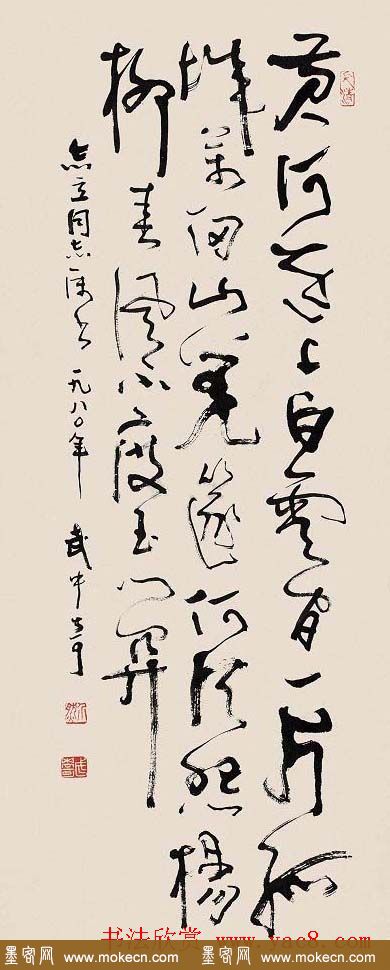 黄河遠上白雲間一片孤
城萬仞山羌笛何須怨楊
柳春風不度玉門關
立同志属书 一九八〇年 武中奇
书法欣赏 www.yac8.com
墨客网 www.mokecn.com 墨客网 www.mokecn.com